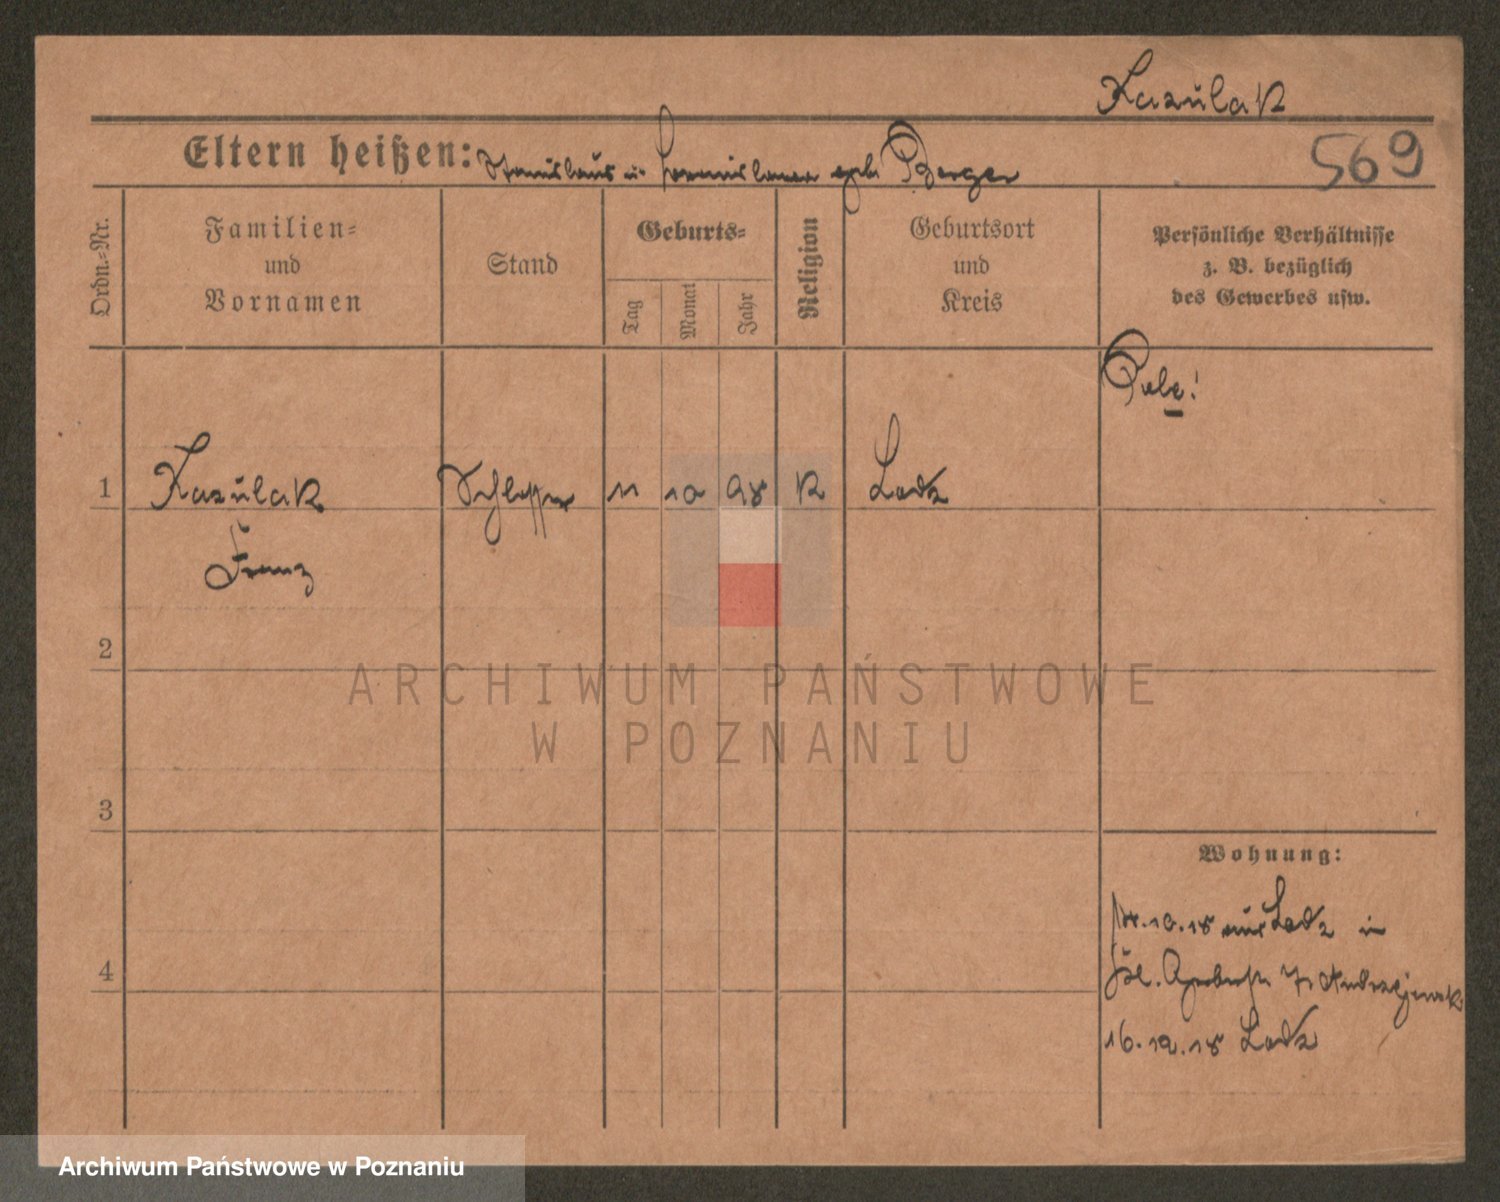 Kazŭlak
569
Eltern heißen: Stanislaus u. geb. Berger
Ordn.-Nr.
Familien-
und
Vornamen
Stand
Geburts-
Tag
Monat
Jahr
Religion
Geburtsort
und
Kreis
Persönliche Verhältnisse
z. B. bezüglich
des Gewerbes usw.
Pole!
1 Kazŭlak Schlosser 11 10 98 K Lodz
Franz
2
3
4
Wohnung:
10.18 aus Lodz in
Andrzejewski
16.12.18 Lodz
ARCHIWUM PAŃSTWOWE
W POZNANIU
Archiwum Państwowe w Poznaniu